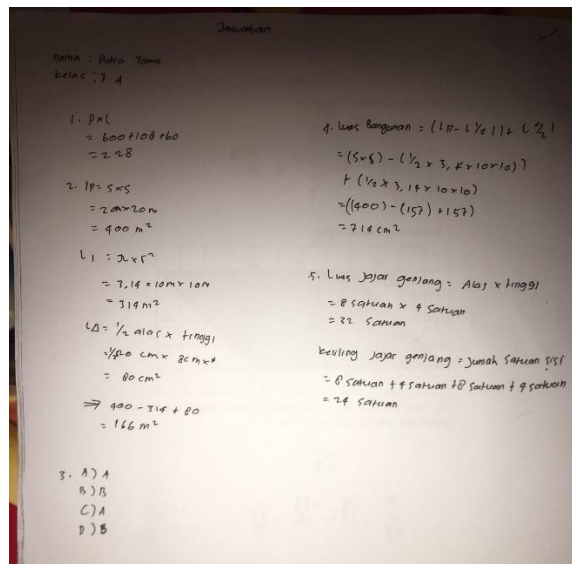 Jawaban
nama : Putra Tama
kelas : 7 A
1. P×l
= 600+108+60
= 228
2. lp= s×s
= 20m×20m
= 400 m²
L1 = π×r²
= 3,14 × 10m × 10m
= 314 m²
LΔ = ½ alas × tinggi
= ½ 20 cm × 8cm
= 80 cm²
⇒ 400 - 314 + 80
= 166 m²
3. A) A
B) B
C) A
D) B
4. Luas Bangunan =
= (5×8) - (½ × 3, × 10×10))
+ (½ × 3,14 × 10×10)
= ((400) - (157) + 157)
= 714 cm²
5. Luas Jajar genjang = Alas × tinggi
= 8 satuan × 4 satuan
= 32 satuan
keliling jajar genjang = jumah satuan sisi
= 8 satuan + 4 satuan + 8 satuan + 4 satuan
= 24 satuan